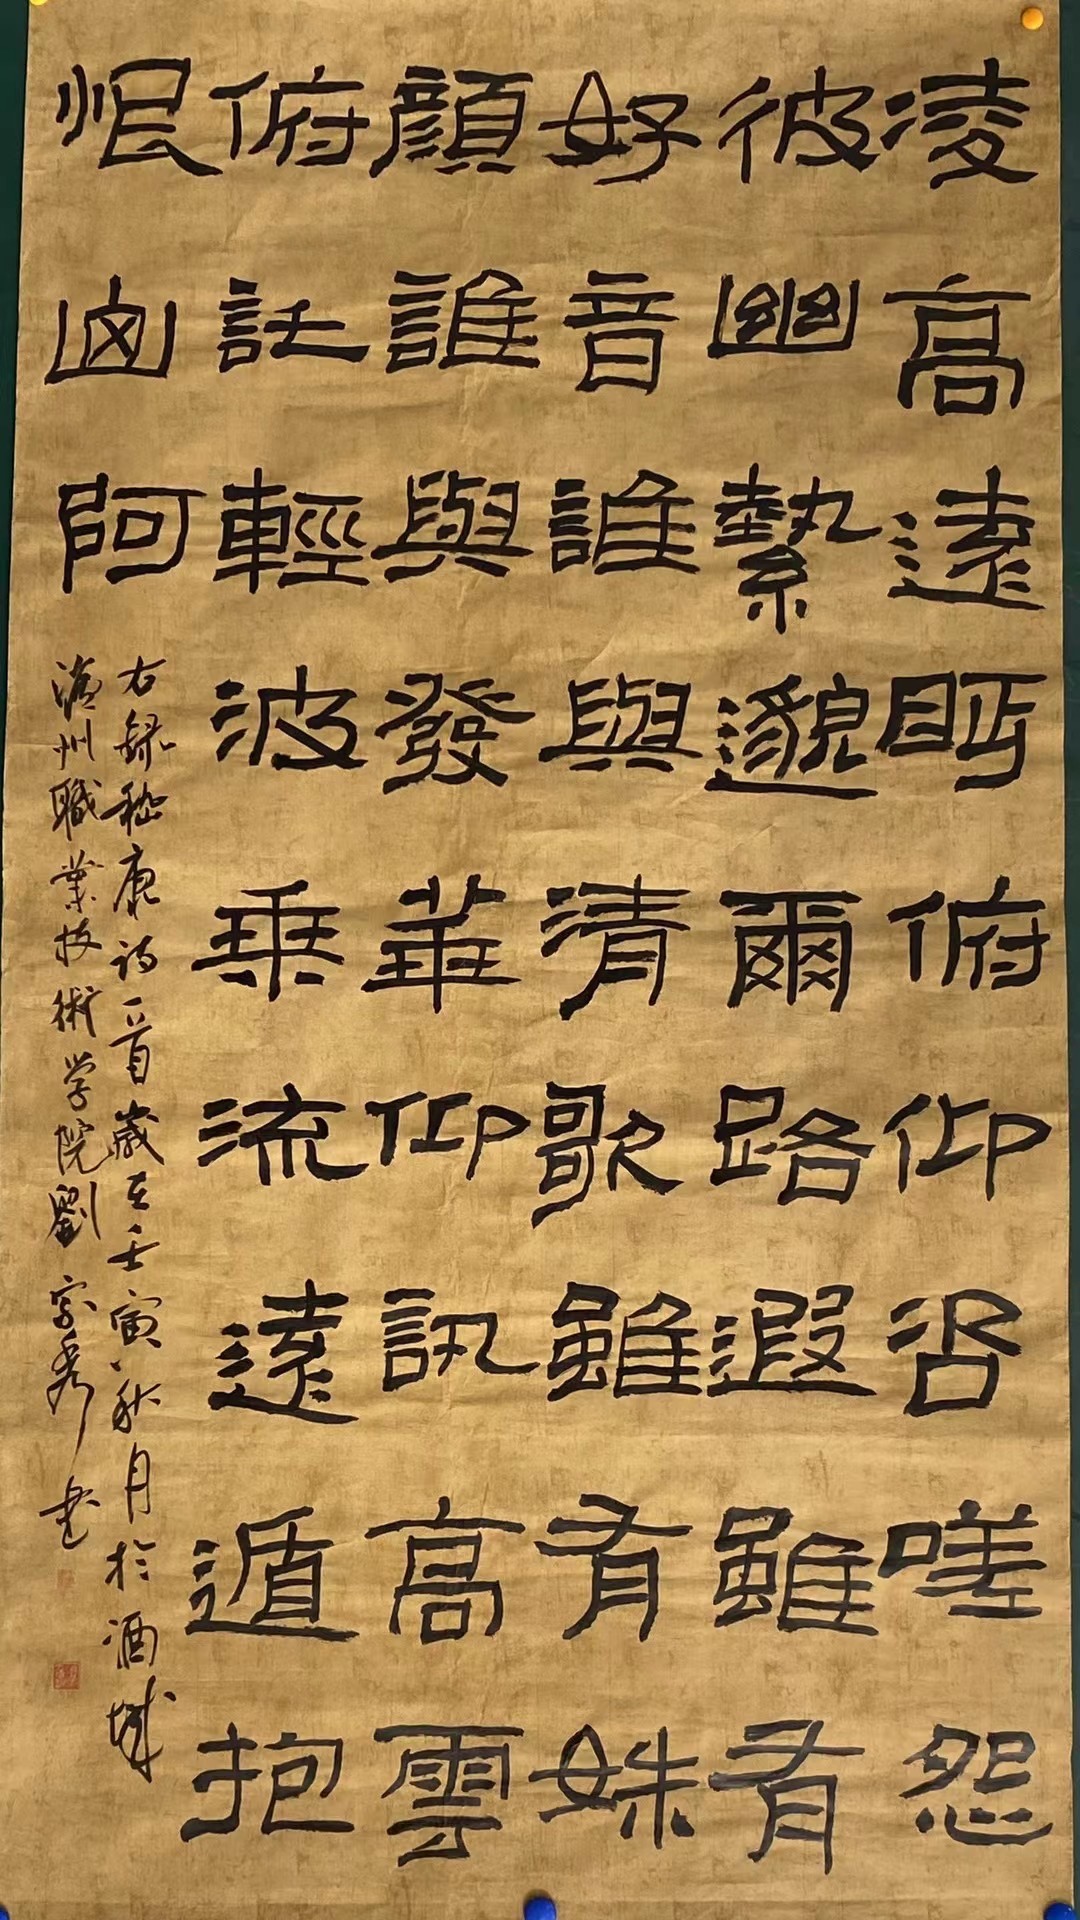 凌高遠眄俯仰咨嗟怨
彼幽縶邈爾路遐雖有
好音誰與清歌雖有姝
顏誰與發華仰訊高雲
俯託輕波乘流遠遁抱
恨山阿
右録嵇康詩一首歲在壬寅秋月於酒城
瀘州職業技術学院劉宗秀書